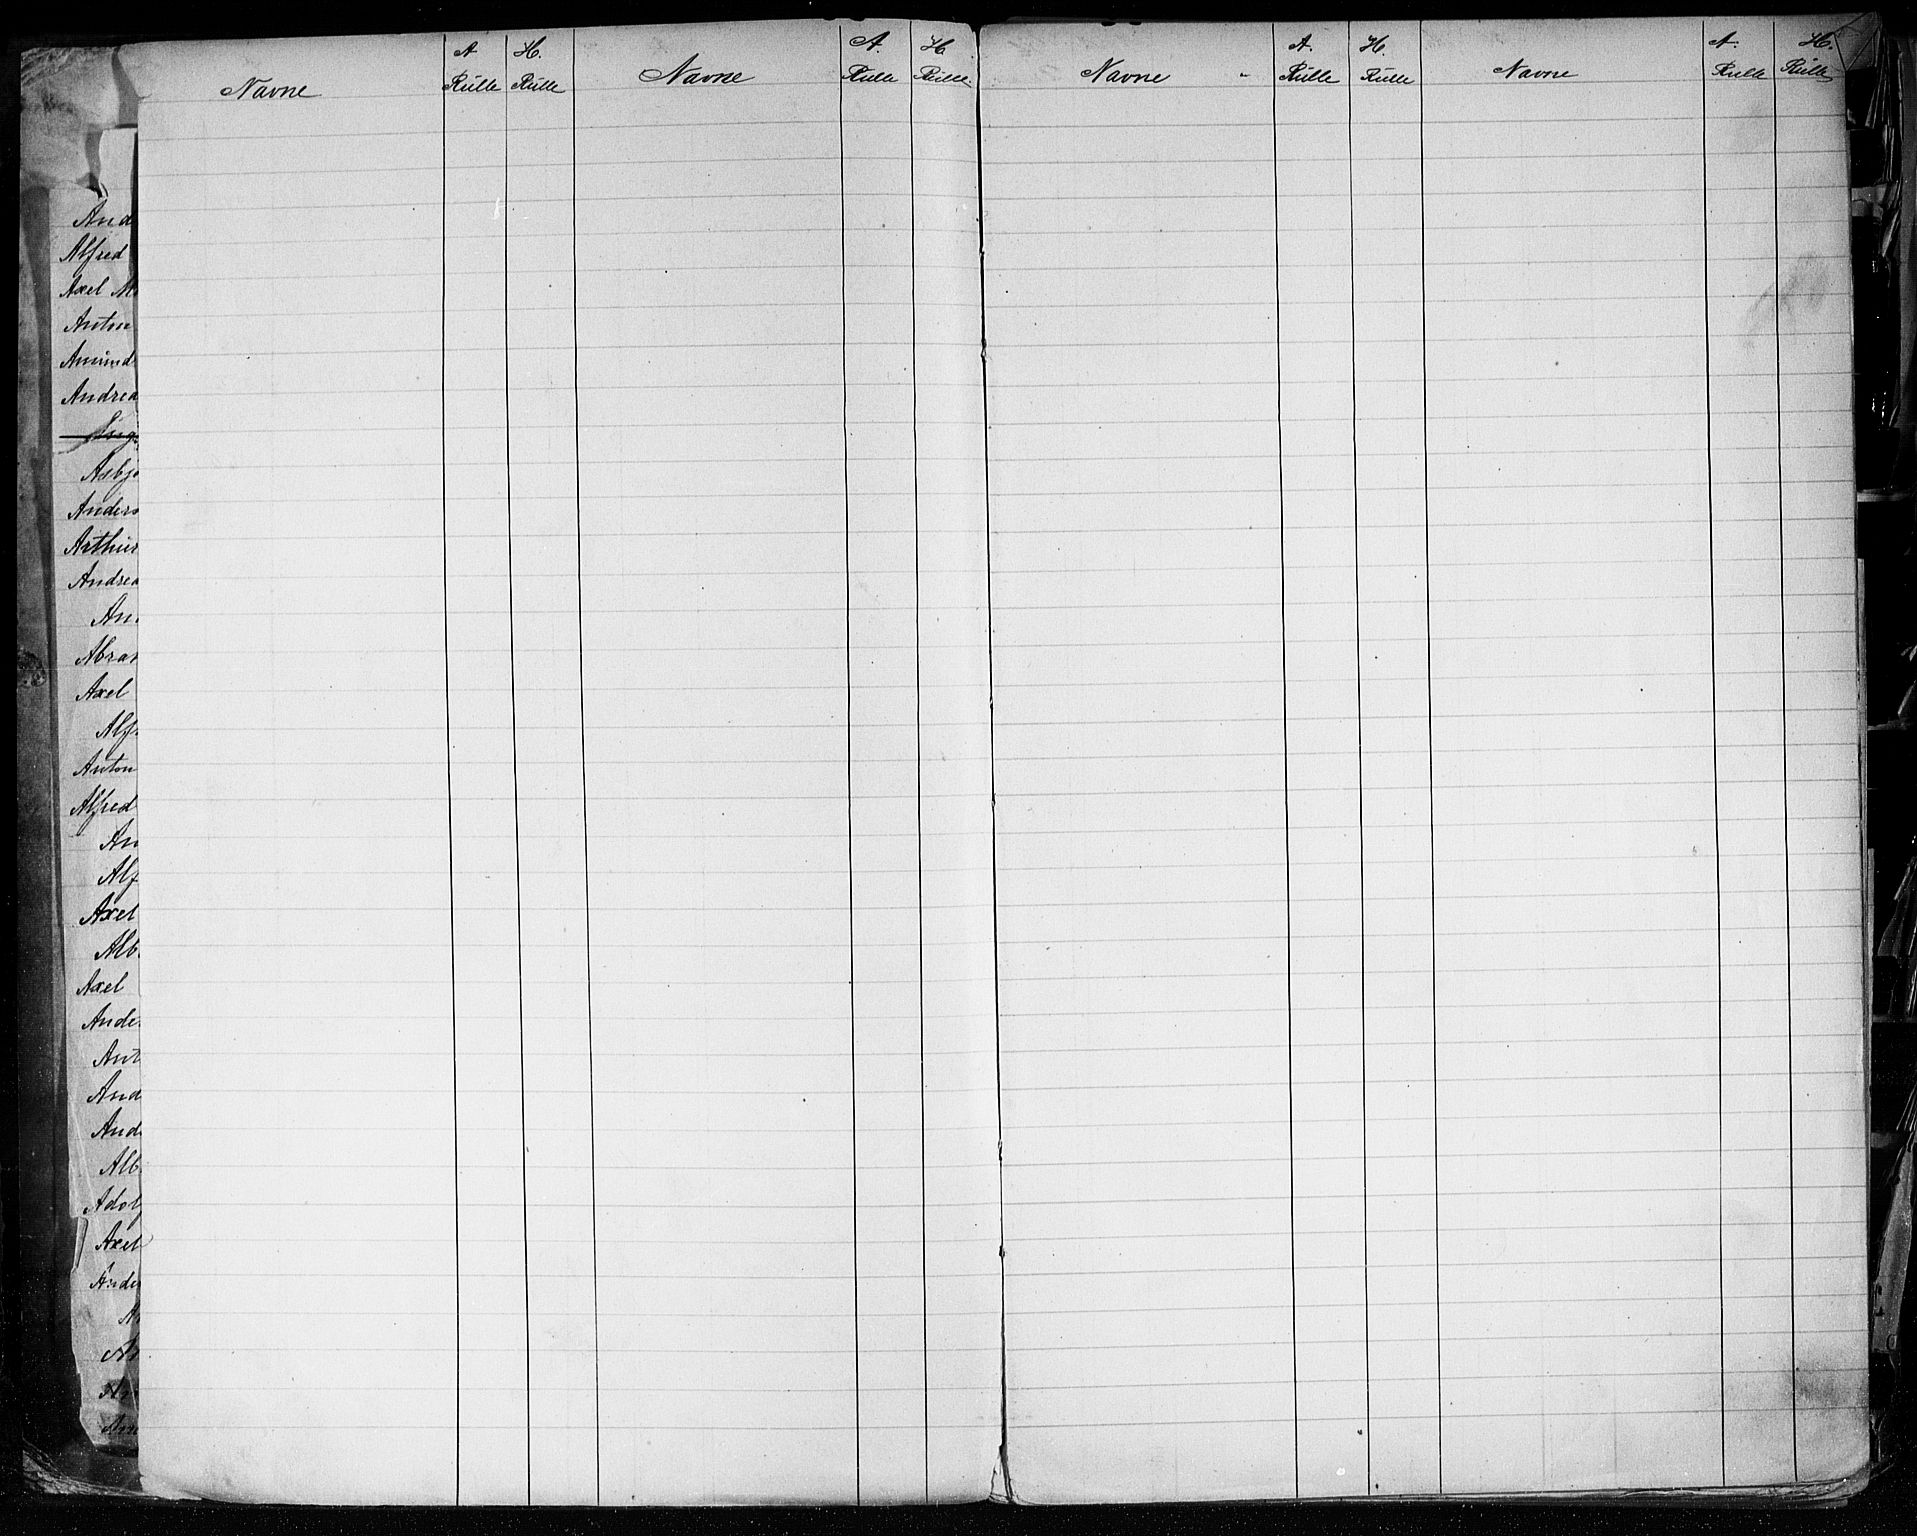 Navne A Rulle H. Rulle Navne A. Rulle H Rulle Navne A. Rulle H. Rulle Navne A. Rulle H. Rulle
And
Alfred
Axel
Anton
Amund
Andrea
Asbjø
Anders
Arthur
Andrea
An
Abra
Axel
Alf
Anton
Alfred
An
Alf
Axel
Alb
Axel
Ander
Ant
And
And
Alb
Adolf
Axel
Ander